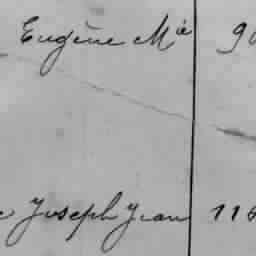 Eugène Mie 90
Joseph Jean 116